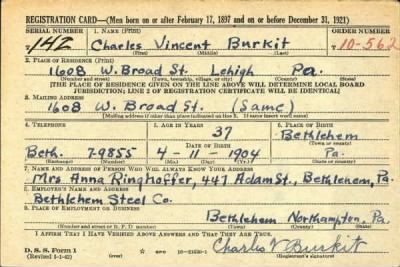 REGISTRATION CARD—(Men born on or after February 17, 1897 and on or before December 31, 1921)
SERIAL NUMBER 1. NAME (Print) ORDER NUMBER
T 142 Charles Vincent Burkit T 10-562
(First) (Middle) (Last)
2. PLACE OF RESIDENCE (Print)
1608 W. Broad St. Lehigh Pa.
(Number and street) (Town, township, village, or city) (County) (State)
[THE PLACE OF RESIDENCE GIVEN ON THE LINE ABOVE WILL DETERMINE LOCAL BOARD
JURISDICTION; LINE 2 OF REGISTRATION CERTIFICATE WILL BE IDENTICAL]
3. MAILING ADDRESS
1608 W. Broad St. (Same)
[Mailing address if other than place indicated on line 2. If same insert word same]
4. TELEPHONE 5. AGE IN YEARS 6. PLACE OF BIRTH
37 Bethlehem
DATE OF BIRTH (Town or county)
Beth. 7-9855 4-11-1904 Pa.
(Exchange) (Number) (Mo.) (Day) (Yr.) (State or country)
7. NAME AND ADDRESS OF PERSON WHO WILL ALWAYS KNOW YOUR ADDRESS
Mrs Anna Ringhoffer, 441 Adam St., Bethlehem, Pa.
8. EMPLOYER'S NAME AND ADDRESS
Bethlehem Steel Co.
9. PLACE OF EMPLOYMENT OR BUSINESS
Bethlehem Northampton, Pa.
(Number and street or R. F. D. number) (Town) (County) (State)
I AFFIRM THAT I HAVE VERIFIED ABOVE ANSWERS AND THAT THEY ARE TRUE.
D. S. S. Form 1
(Revised 1-1-42) (over) Charles V Burkit